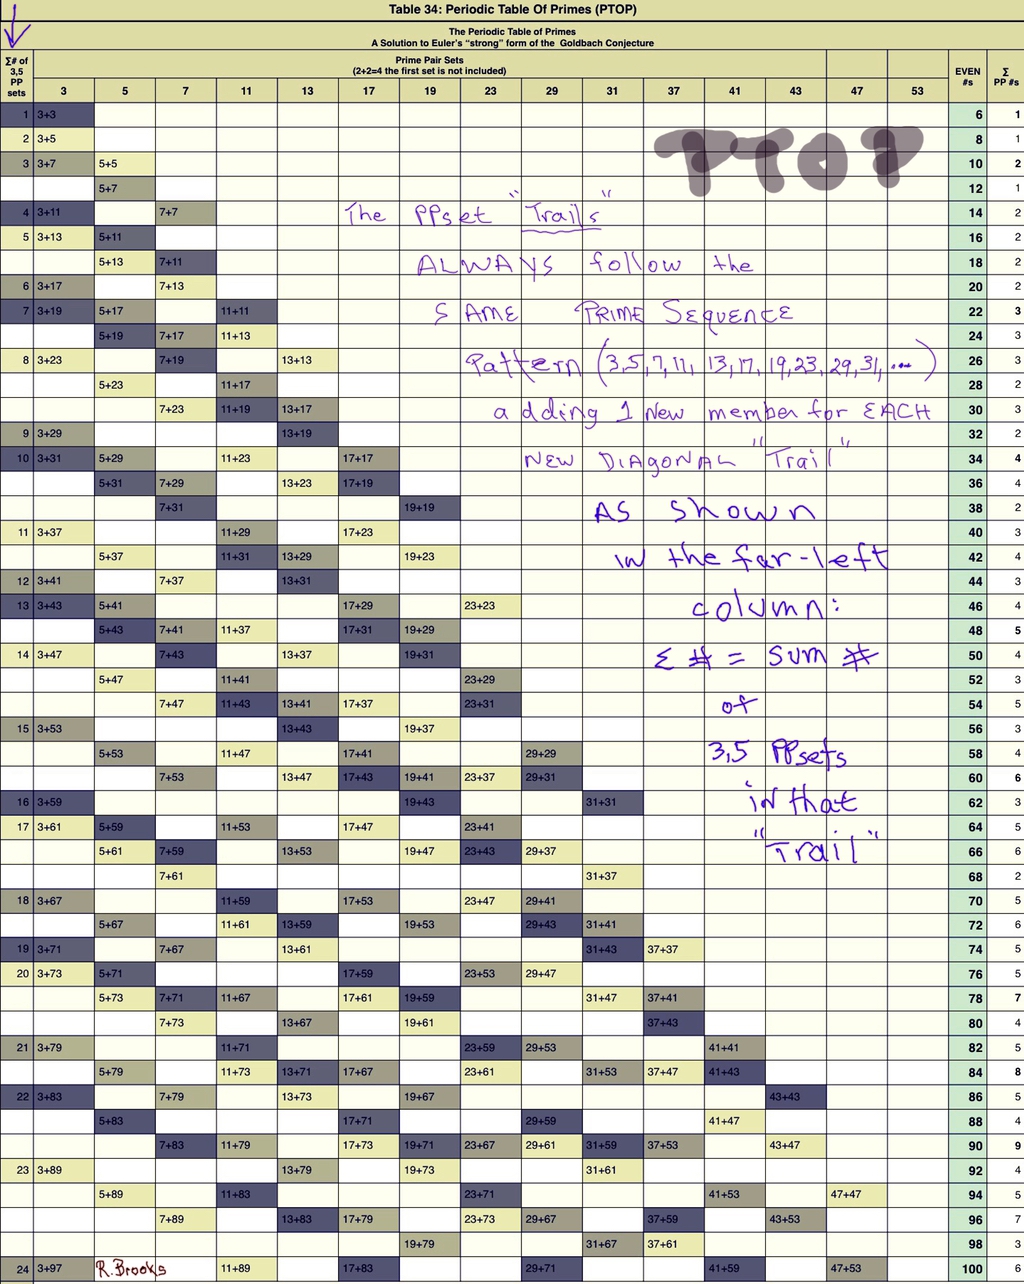 Table 34: Periodic Table Of Primes (PTOP)
The Periodic Table of Primes
A Solution to Euler's "strong" form of the Goldbach Conjecture
Σ# of 3,5 PP sets
Prime Pair Sets
(2+2=4 the first set is not included)
EVEN #s
Σ PP #s
3 5 7 11 13 17 19 23 29 31 37 41 43 47 53
1 3+3 6 1
2 3+5 8 1
3 3+7 5+5 10 2
5+7 12 1
4 3+11 7+7 14 2
5 3+13 5+11 16 2
5+13 7+11 18 2
6 3+17 7+13 20 2
7 3+19 5+17 11+11 22 3
5+19 7+17 11+13 24 3
8 3+23 7+19 13+13 26 3
5+23 11+17 28 2
7+23 11+19 13+17 30 3
9 3+29 13+19 32 2
10 3+31 5+29 11+23 17+17 34 4
5+31 7+29 13+23 17+19 36 4
7+31 19+19 38 2
11 3+37 11+29 17+23 40 3
5+37 11+31 13+29 19+23 42 4
12 3+41 7+37 13+31 44 3
13 3+43 5+41 17+29 23+23 46 4
5+43 7+41 11+37 17+31 19+29 48 5
14 3+47 7+43 13+37 19+31 50 4
5+47 11+41 23+29 52 3
7+47 11+43 13+41 17+37 23+31 54 5
15 3+53 13+43 19+37 56 3
5+53 11+47 17+41 29+29 58 4
7+53 13+47 17+43 19+41 23+37 29+31 60 6
16 3+59 19+43 31+31 62 3
17 3+61 5+59 11+53 17+47 23+41 64 5
5+61 7+59 13+53 19+47 23+43 29+37 66 6
7+61 31+37 68 2
18 3+67 11+59 17+53 23+47 29+41 70 5
5+67 11+61 13+59 19+53 29+43 31+41 72 6
19 3+71 7+67 13+61 31+43 37+37 74 5
20 3+73 5+71 17+59 23+53 29+47 76 5
5+73 7+71 11+67 17+61 19+59 31+47 37+41 78 7
7+73 13+67 19+61 37+43 80 4
21 3+79 11+71 23+59 29+53 41+41 82 5
5+79 11+73 13+71 17+67 23+61 31+53 37+47 41+43 84 8
22 3+83 7+79 13+73 19+67 43+43 86 5
5+83 17+71 29+59 41+47 88 4
7+83 11+79 17+73 19+71 23+67 29+61 31+59 37+53 43+47 90 9
23 3+89 13+79 19+73 31+61 92 4
5+89 11+83 23+71 41+53 47+47 94 5
7+89 13+83 17+79 23+73 29+67 37+59 43+53 96 7
19+79 31+67 37+61 98 3
24 3+97 R.Brooks 11+89 17+83 29+71 41+59 47+53 100 6
PTOP
The PPset "Trails"
ALWAYS follow the
SAME PRIME SEQUENCE
Pattern (3,5,7,11, 13,17, 19,23, 29,31, ...)
adding 1 New member for EACH
NEW DIAGONAL "Trail"
AS shown
in the far-left
column:
Σ # = sum #
of
3,5 PPsets
in that
"Trail"